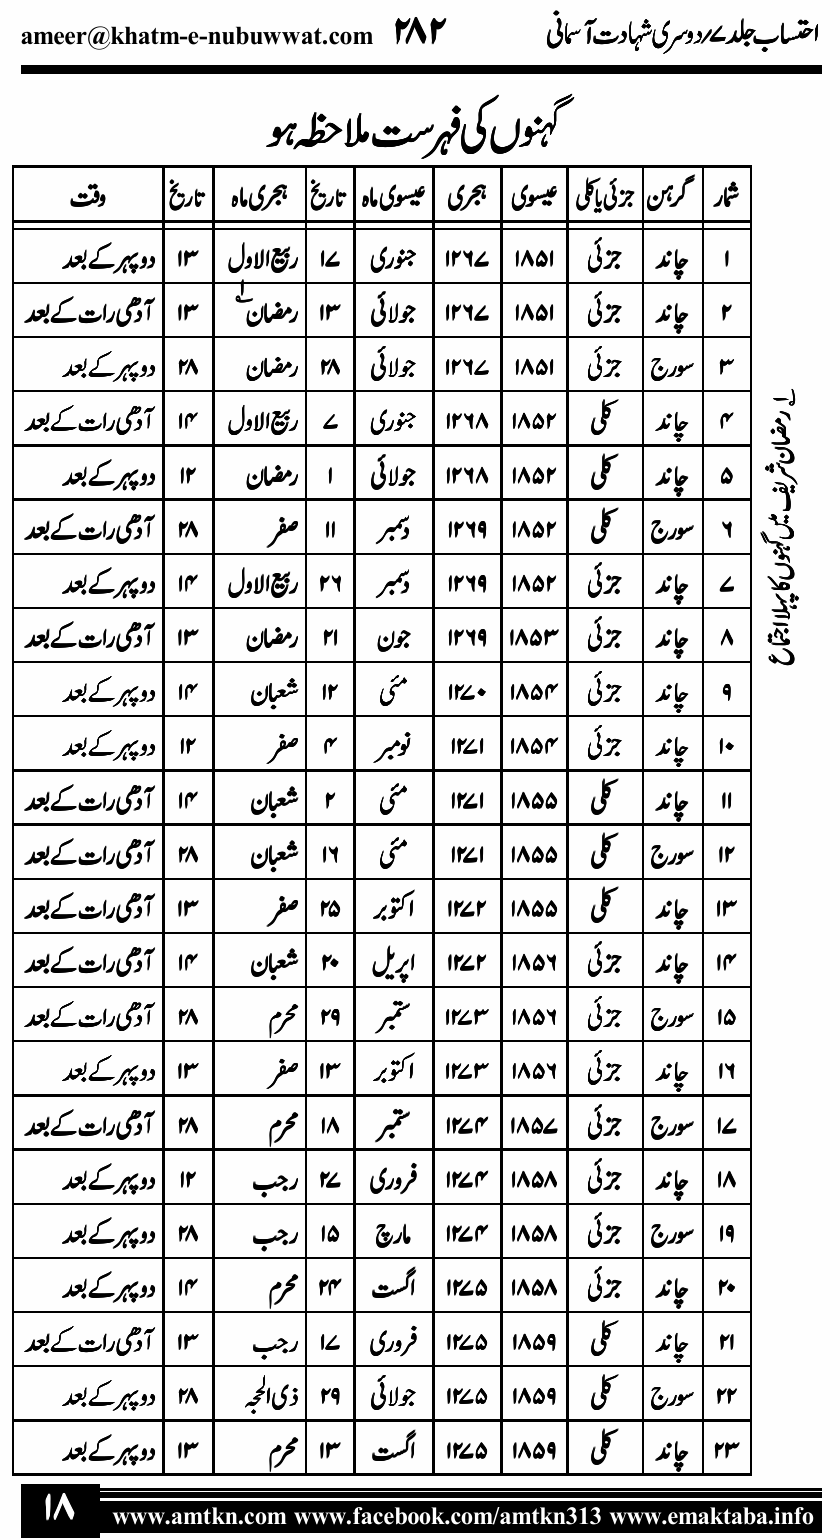 احتساب جلد ۷؍دوسری شہادت آسمانی ۲۸۲ ameer@khatm-e-nubuwwat.com
گہنوں کی فہرست ملاحظہ ہو
شمار گرہن جزئی یا کلی عیسوی ہجری عیسوی ماہ تاریخ ہجری ماہ تاریخ وقت
۱ چاند جزئی ۱۸۵۱ ۱۲۶۷ جنوری ۱۷ ربیع الاول ۱۳ دوپہر کے بعد
۲ چاند جزئی ۱۸۵۱ ۱۲۶۷ جولائی ۱۳ رمضان۱ ۱۳ آدھی رات کے بعد
۳ سورج جزئی ۱۸۵۱ ۱۲۶۷ جولائی ۲۸ رمضان ۲۸ دوپہر کے بعد
۴ چاند کلی ۱۸۵۲ ۱۲۶۸ جنوری ۷ ربیع الاول ۱۴ آدھی رات کے بعد
۵ چاند کلی ۱۸۵۲ ۱۲۶۸ جولائی ۱ رمضان ۱۲ دوپہر کے بعد
۶ سورج کلی ۱۸۵۲ ۱۲۶۹ دسمبر ۱۱ صفر ۲۸ آدھی رات کے بعد
۷ چاند جزئی ۱۸۵۲ ۱۲۶۹ دسمبر ۲۶ ربیع الاول ۱۴ دوپہر کے بعد
۸ چاند جزئی ۱۸۵۳ ۱۲۶۹ جون ۲۱ رمضان ۱۳ آدھی رات کے بعد
۹ چاند جزئی ۱۸۵۴ ۱۲۷۰ مئی ۱۲ شعبان ۱۴ دوپہر کے بعد
۱۰ چاند جزئی ۱۸۵۴ ۱۲۷۱ نومبر ۴ صفر ۱۲ دوپہر کے بعد
۱۱ چاند کلی ۱۸۵۵ ۱۲۷۱ مئی ۲ شعبان ۱۴ آدھی رات کے بعد
۱۲ سورج کلی ۱۸۵۵ ۱۲۷۱ مئی ۱۶ شعبان ۲۸ آدھی رات کے بعد
۱۳ چاند کلی ۱۸۵۵ ۱۲۷۲ اکتوبر ۲۵ صفر ۱۳ آدھی رات کے بعد
۱۴ چاند جزئی ۱۸۵۶ ۱۲۷۲ اپریل ۲۰ شعبان ۱۴ آدھی رات کے بعد
۱۵ سورج جزئی ۱۸۵۶ ۱۲۷۳ ستمبر ۲۹ محرم ۲۸ آدھی رات کے بعد
۱۶ چاند جزئی ۱۸۵۶ ۱۲۷۳ اکتوبر ۱۳ صفر ۱۳ دوپہر کے بعد
۱۷ سورج جزئی ۱۸۵۷ ۱۲۷۴ ستمبر ۱۸ محرم ۲۸ آدھی رات کے بعد
۱۸ چاند جزئی ۱۸۵۸ ۱۲۷۴ فروری ۲۷ رجب ۱۲ دوپہر کے بعد
۱۹ سورج جزئی ۱۸۵۸ ۱۲۷۴ مارچ ۱۵ رجب ۲۸ دوپہر کے بعد
۲۰ چاند جزئی ۱۸۵۸ ۱۲۷۵ اگست ۲۴ محرم ۱۴ دوپہر کے بعد
۲۱ چاند کلی ۱۸۵۹ ۱۲۷۵ فروری ۱۷ رجب ۱۳ آدھی رات کے بعد
۲۲ سورج کلی ۱۸۵۹ ۱۲۷۵ جولائی ۲۹ ذی الحجہ ۲۸ دوپہر کے بعد
۲۳ چاند کلی ۱۸۵۹ ۱۲۷۵ اگست ۱۳ محرم ۱۳ دوپہر کے بعد
۱ رمضان شریف میں گہنوں کا پہلا اجتماع
۱۸ www.amtkn.com www.facebook.com/amtkn313 www.emaktaba.info